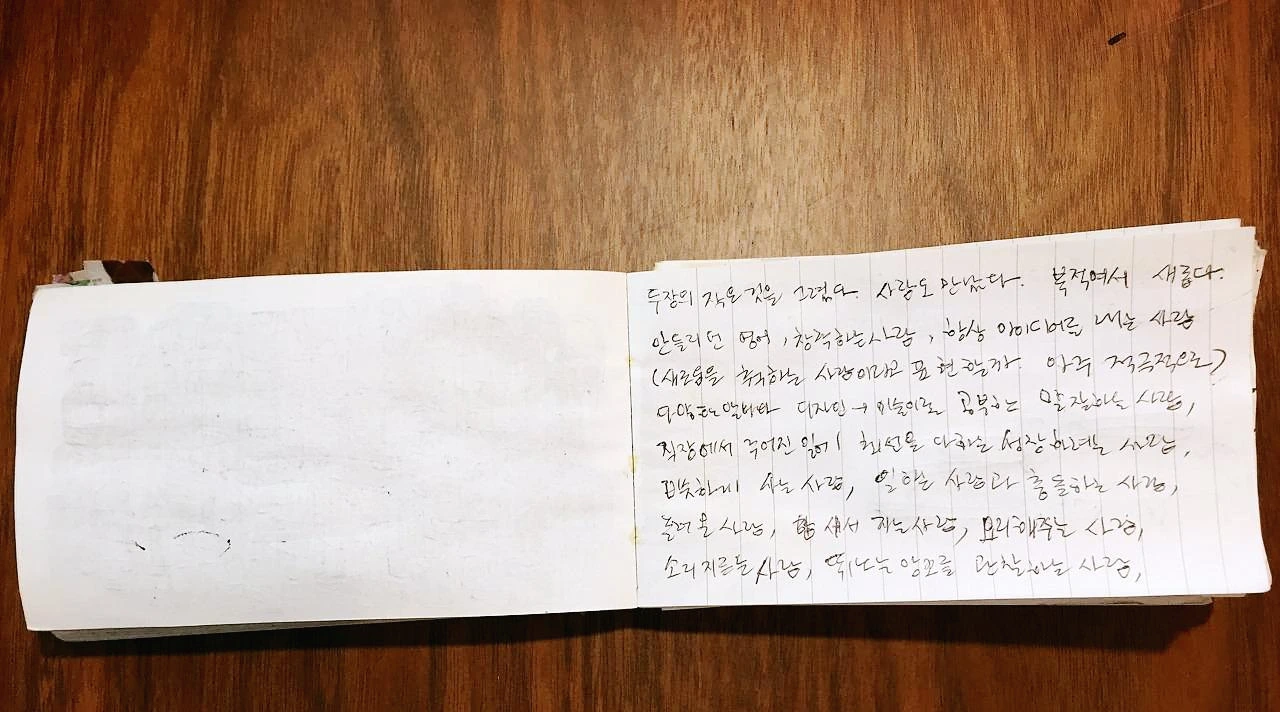 두장의 작은것을 그렸다. 사람도 만났다. 북적여서 새롭다.
안들리던 영어, 창작하는 사람, 항상 아이디어를 내는 사람
(새로움을 추구하는 사람이라고 표현할까. 아주 적극적으로)
디자인→미술이론 공부하는 말잘하는 사람,
직장에서 주어진 일에 최선을 다하는 성장하려는 사람,
사는 사람, 일하는 사람과 충돌하는 사람,
사람, 힘 사람, 요리해주는 사람,
소리지르는 사람, 관찰하는 사람,